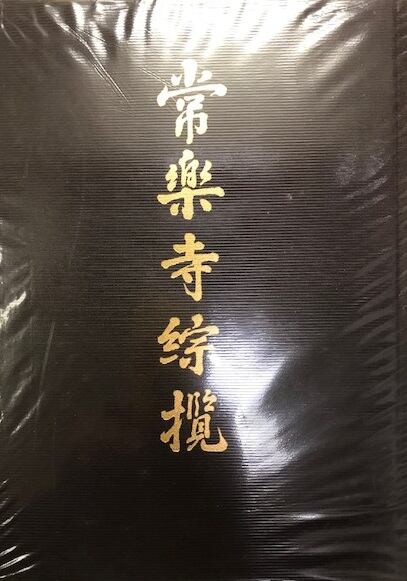 常樂寺綜攬